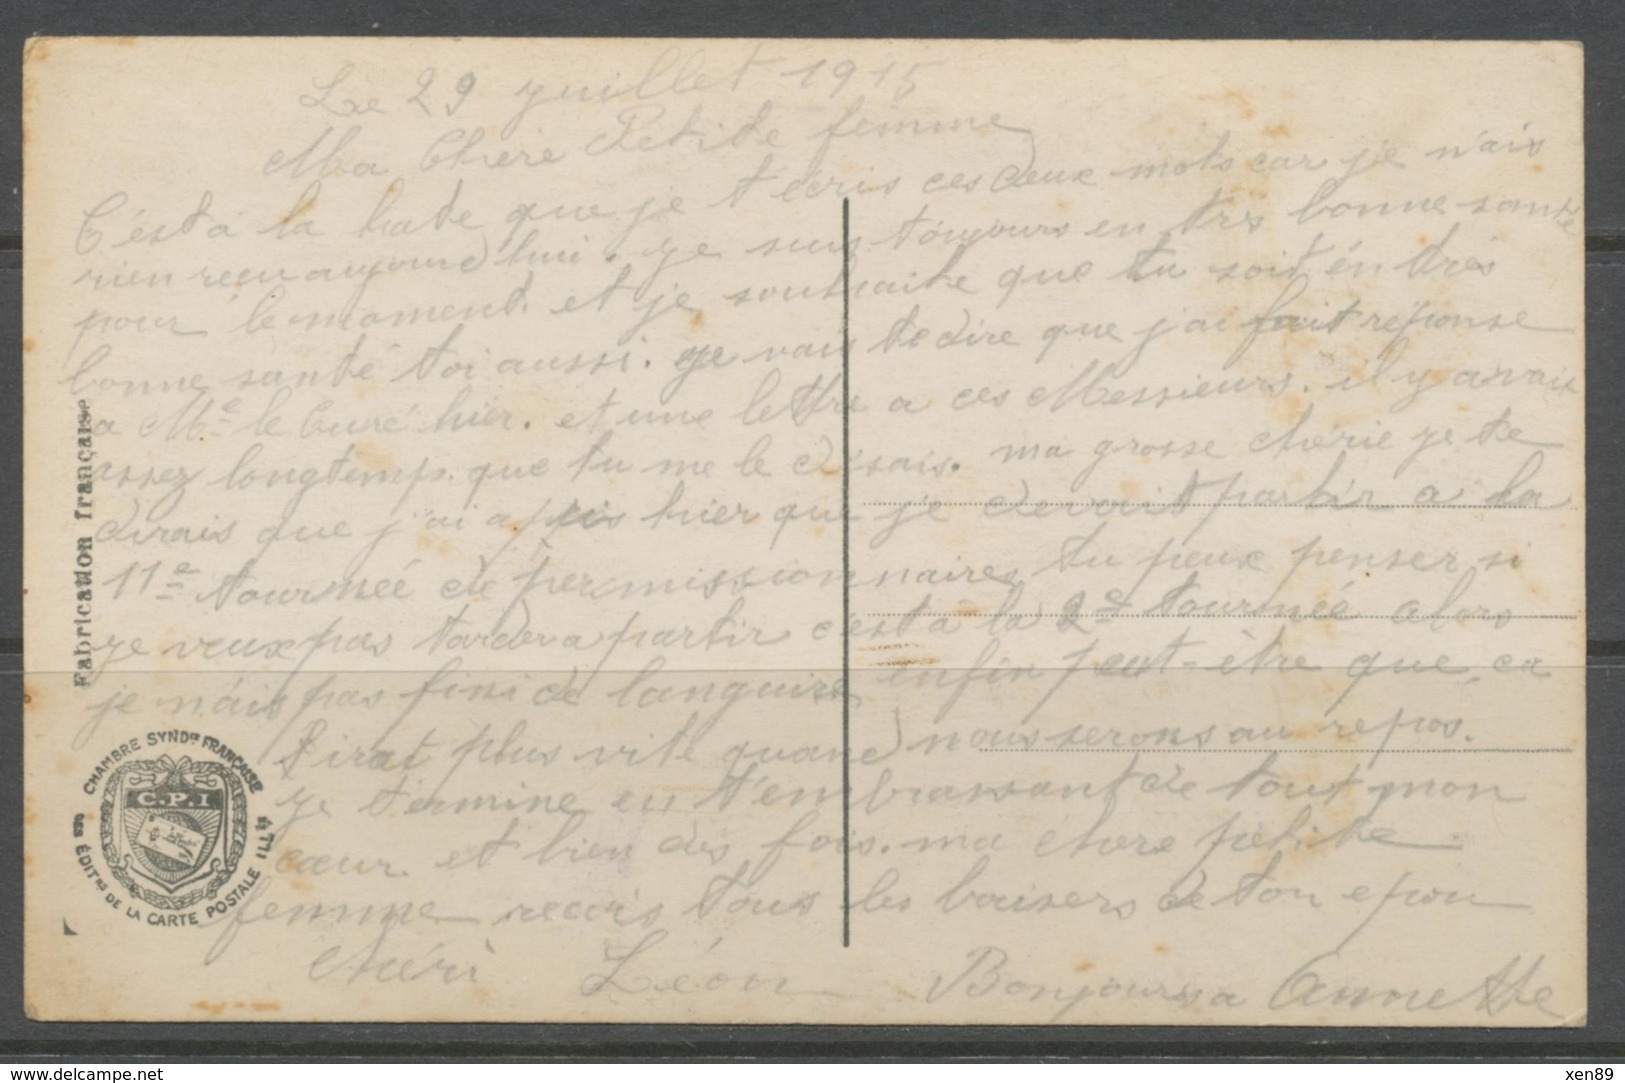 Le 29 juillet 1915
Ma Chere Petite femme
C'ést à la hate que je t'écris ces deux mots car je n'ais
rien recu aujourd'hui. je suis toujours en très bonne santé
pour le moment. et je souhaite que tu soit én très
bonne santé toi aussi. je vais te dire que j'ai fait réponse
a Mr le Curé hier. et une lettre a ces Messieurs. il y avait
assez longtemp. que tu me le disais. ma grosse chérie je te
dirais que j'ai apris hier que je devait partir a la
11e tournéé de permissionnaires tu peux penser si
je veux pas tarder a partir c'ést à la 2e tournéé alors
je n'ais pas fini de languire enfin peut-être que ca
pirat plus vite quand nous serons au repos.
je termine en t'embrassant de tout mon
cœur. et bien des fois. ma chere petite
femme recois tous les baisers de ton epou
chéri Léon Bonjour a Annette
Fabrication française
CHAMBRE SYNDLE FRANÇAISE
DES ÉDITRS DE LA CARTE POSTALE ILLÉE
C.P.I
www.delcampe.net
xen89